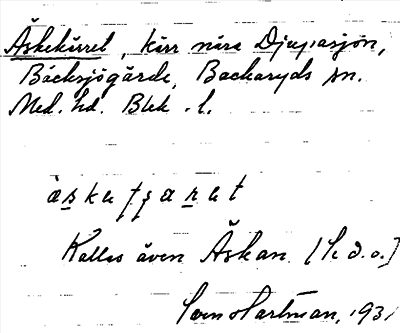 Äskekärret, kärr nära Djupasjön,
Bäcksjögärde, Backaryds sn.
Med. hd. Blek. l.
Kallas även Äskan. (Se d. o.)
Sven Hartman, 1931